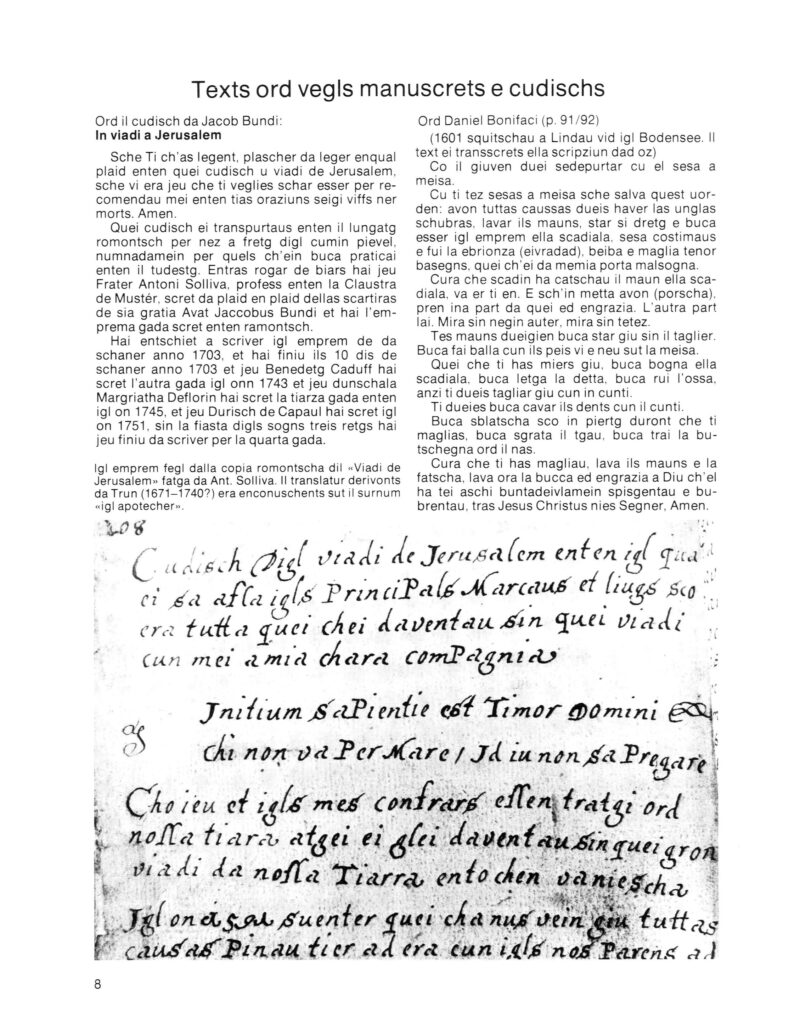 Texts ord vegls manuscrets e cudischs
Ord il cudisch da Jacob Bundi:
In viadi a Jerusalem
Sche Ti ch'as legent, plascher da leger enqual
plaid enten quei cudisch u viadi de Jerusalem,
sche vi era jeu che ti veglies schar esser per re-
comendau mei enten tias oraziuns seigi viffs ner
morts. Amen.
Quei cudisch ei transpurtaus enten il lungatg
romontsch per nez a fretg digl cumin pievel,
numnadamein per quels ch'ein buca praticai
enten il tudestg. Entras rogar de biars hai jeu
Frater Antoni Solliva, profess enten la Claustra
de Mustér, scret da plaid en plaid dellas scartiras
de sia gratia Avat Jaccobus Bundi et hai l'em-
prema gada scret enten ramontsch.
Hai entschiet a scriver igl emprem de da
schaner anno 1703, et hai finiu ils 10 dis de
schaner anno 1703 et jeu Benedetg Caduff hai
scret l'autra gada igl onn 1743 et jeu dunschala
Margriatha Deflorin hai scret la tiarza gada enten
igl on 1745, et jeu Durisch de Capaul hai scret igl
on 1751, sin la fiasta digls sogns treis retgs hai
jeu finiu da scriver per la quarta gada.
Igl emprem fegl dalla copia romontscha dil «Viadi de
Jerusalem» fatga da Ant. Solliva. Il translatur derivonts
da Trun (1671–1740?) era enconuschents sut il surnum
«igl apotecher».
Ord Daniel Bonifaci (p. 91/92)
(1601 squitschau a Lindau vid igl Bodensee. Il
text ei transscrets ella scripziun dad oz)
Co il giuven duei sedepurtar cu el sesa a
meisa.
Cu ti tez sesas a meisa sche salva quest uor-
den: avon tuttas caussas dueis haver las unglas
schubras, lavar ils mauns, star si dretg e buca
esser igl emprem ella scadiala, sesa costimaus
e fui la ebrionza (eivradad), beiba e maglia tenor
basegns, quei ch'ei da memia porta malsogna.
Cura che scadin ha catschau il maun ella sca-
diala, va er ti en. E sch'in metta avon (porscha),
pren ina part da quei ed engrazia. L'autra part
lai. Mira sin negin auter, mira sin tetez.
Tes mauns dueigien buca star giu sin il taglier.
Buca fai balla cun ils peis vi e neu sut la meisa.
Quei che ti has miers giu, buca bogna ella
scadiala, buca letga la detta, buca rui l'ossa,
anzi ti dueis tagliar giu cun in cunti.
Ti dueies buca cavar ils dents cun il cunti.
Buca sblatscha sco in piertg duront che ti
maglias, buca sgrata il tgau, buca trai la bu-
tschegna ord il nas.
Cura che ti has magliau, lava ils mauns e la
fatscha, lava ora la bucca ed engrazia a Diu ch'el
ha tei aschi buntadeivlamein spisgentau e bu-
brentau, tras Jesus Christus nies Segner, Amen.
208
Cudisch Digl viadi de Jerusalem enten igl qua
ei sa assa igls PrinciPals Marcaus et liugs sco
era tutta quei chei daventau sin quei viadi
cun mei a mia chara comPagnia
Jnitium saPientie est Timor Domini
chi non va Per Mare / Jd iu non sa Pregare
Cho ieu et igls mes contrars essen tratgi ord
nossa tiara atgei ei glei daventau sin quei gron
viadi da nossa Tiarra entochen vaniescha
Jgl on suenter quei cha nus vein giu tuttas
causas Pinau tier ad era cun igls nos Parens ad
8